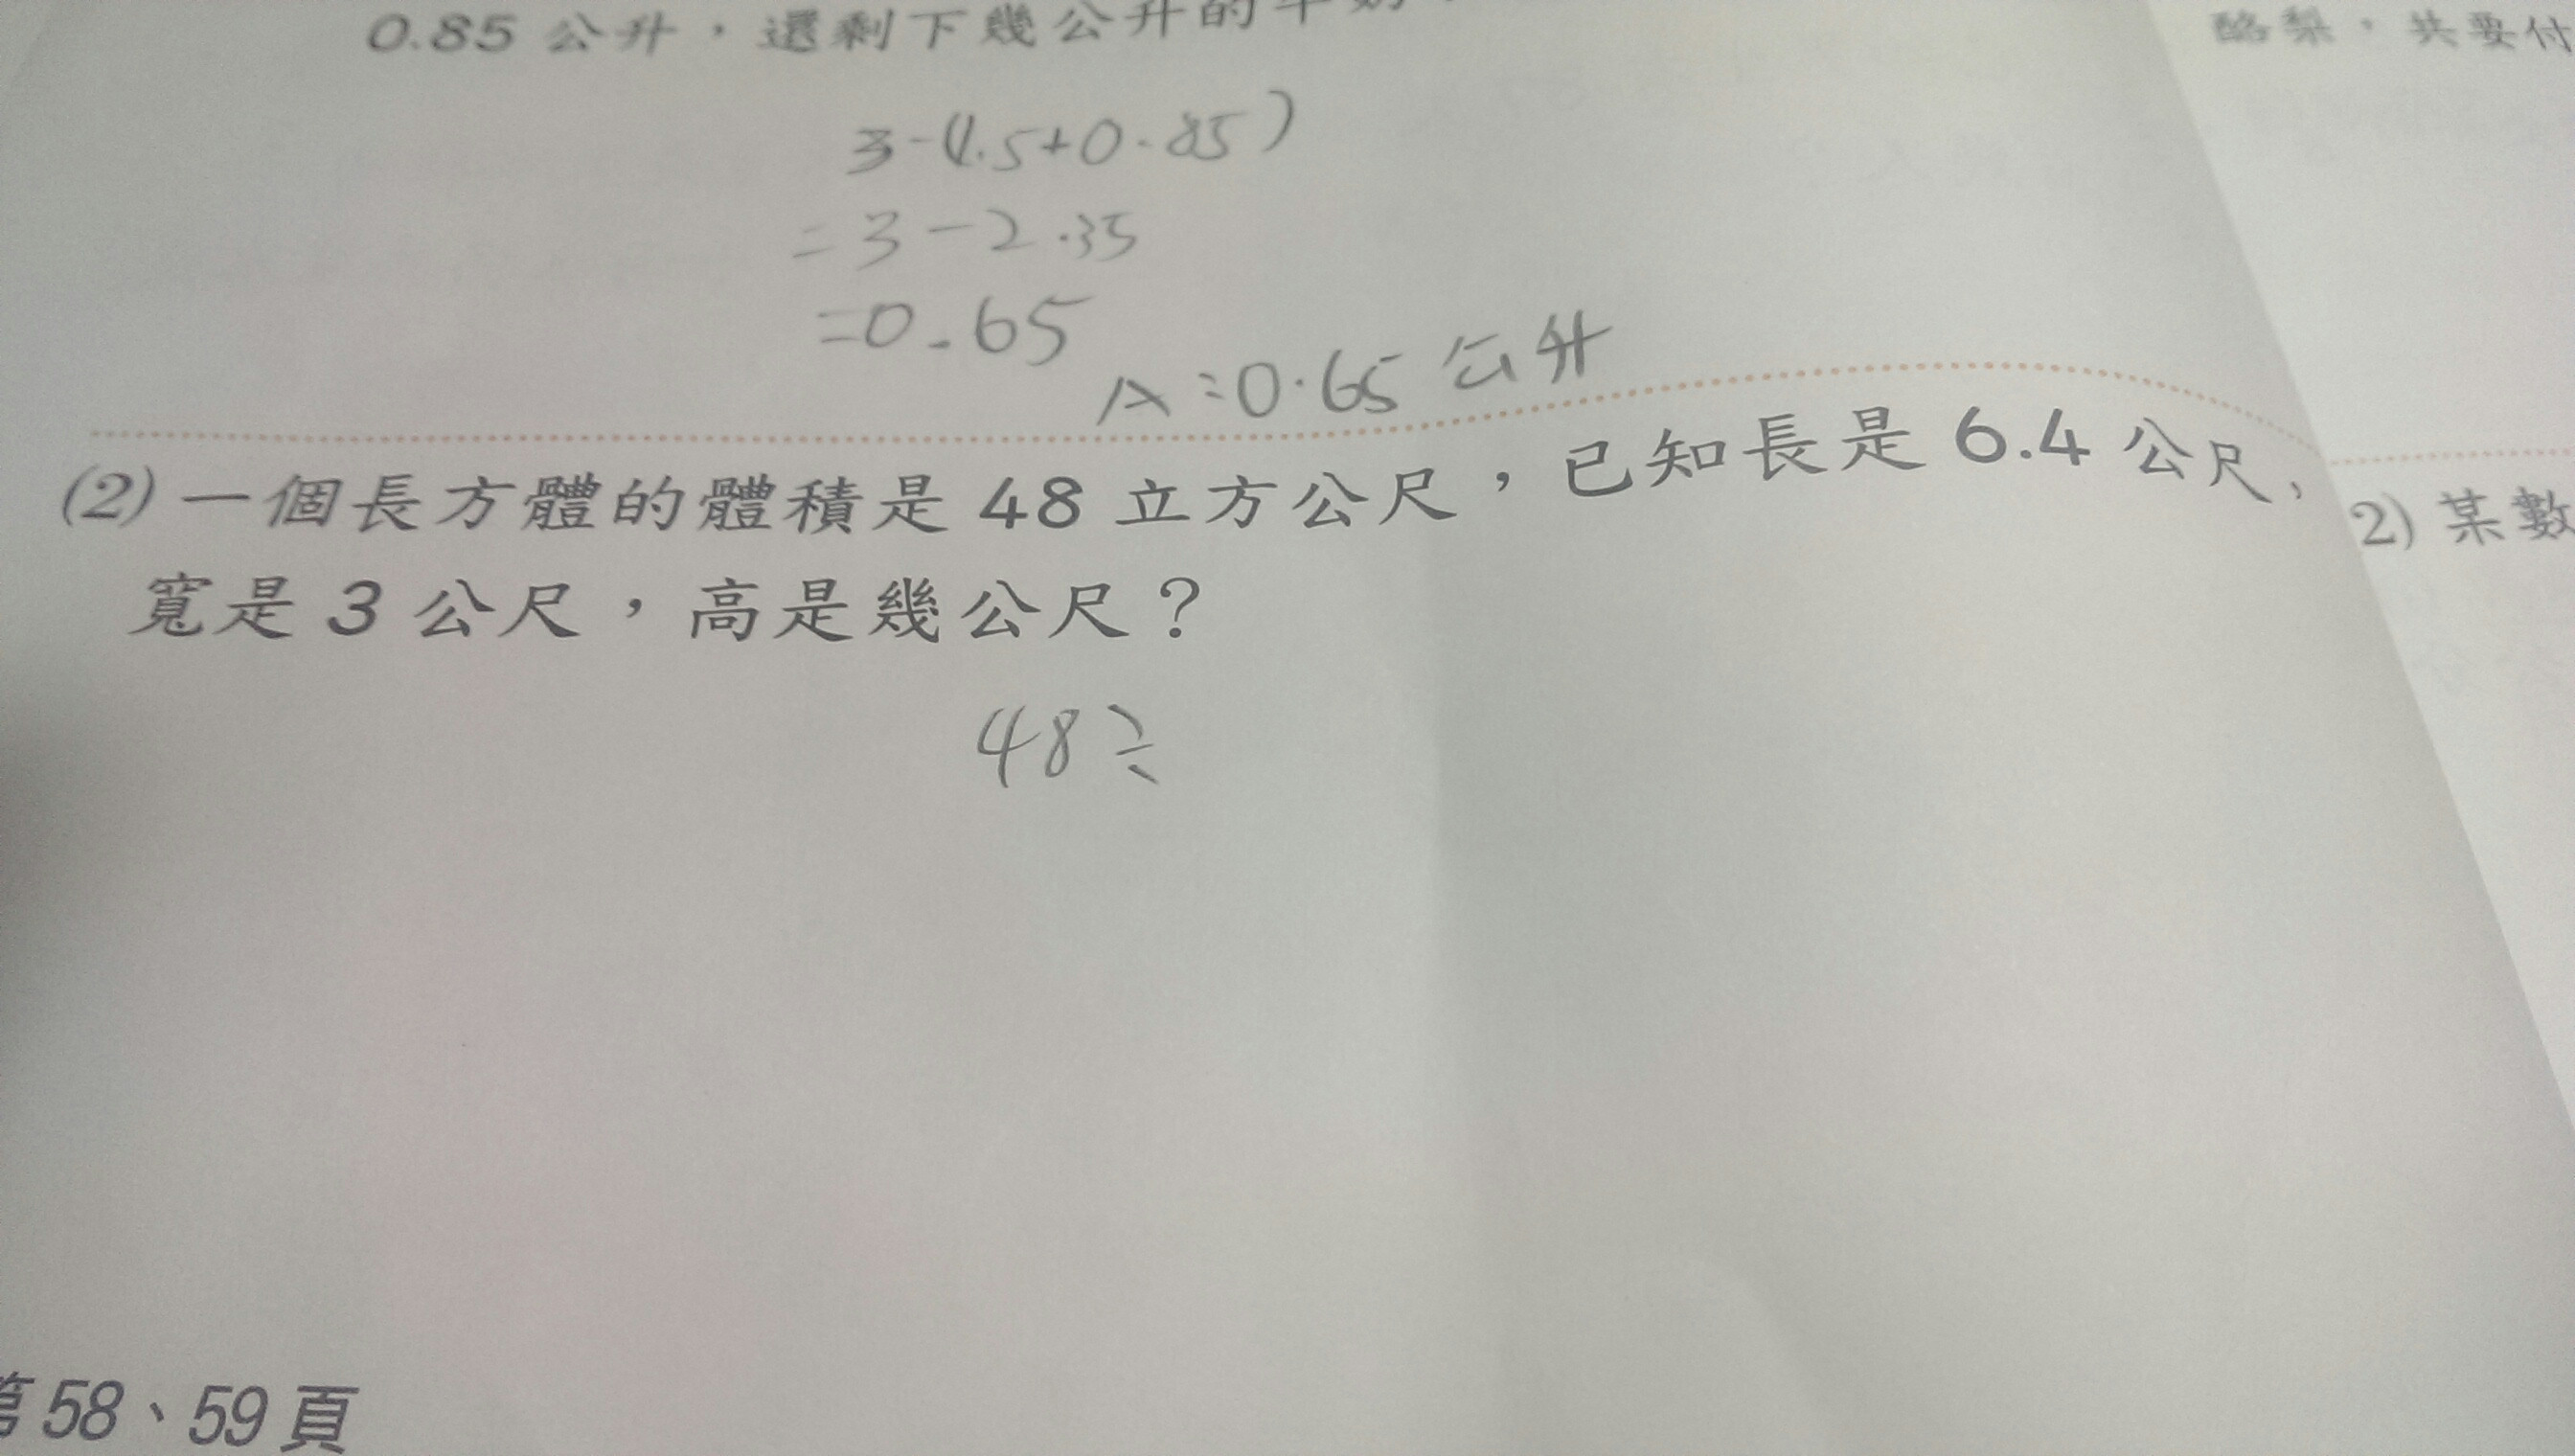 0.85 公升，還剩下幾公升的牛奶
酪梨，共要付
3-(1.5+0.85)
=3-2.35
=0.65
A:0.65公升
(2) 一個長方體的體積是 48 立方公尺，已知長是 6.4 公尺，
寬是 3 公尺，高是幾公尺？
2) 某數
48÷
第 58、59 頁